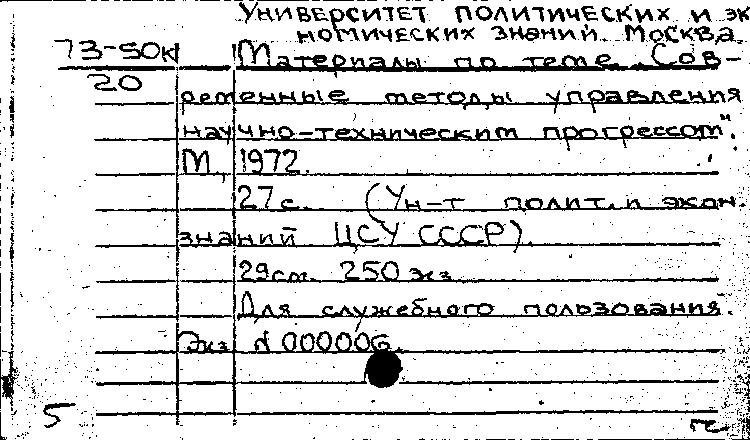 Университет политических и эко
номических знаний. Москва
73-50к
20
Материалы по теме „Сов-
ременные методы управления
научно-техническим прогрессом".
М., 1972.
27с. (Ун-т полит. и экон.
знаний ЦСУ СССР).
29см. 250 экз
Для служебного пользования.
Экз N 000006.
5